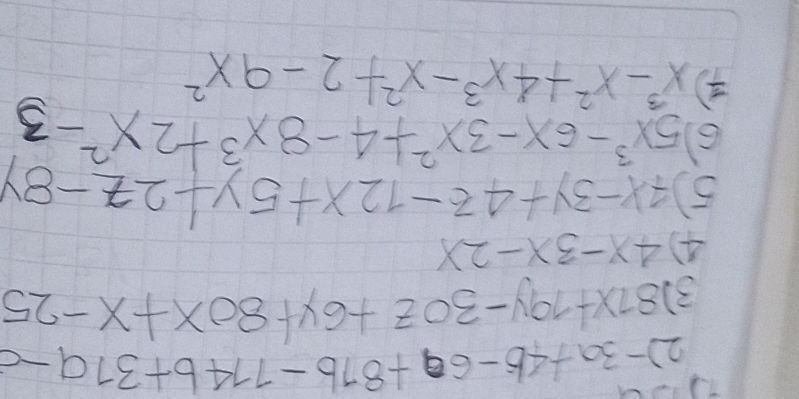 2) -3a+4b-6a+81b-114b+31a-
3) 81x+19y-30z+6y+80x+x-25
4) 4x-3x-2x
5) 7x-3y+4z-12x+5y+2z-8y
6) 5x³-6x-3x²+4-8x³+2x²-3
7) x³-x²+4x³-x²+2-9x²